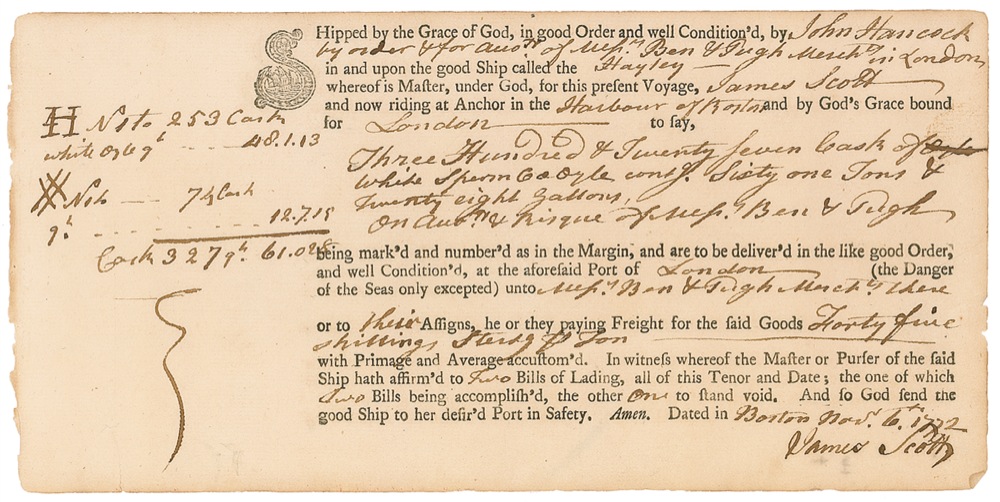 SHipped by the Grace of God, in good Order and well Condition'd, by John Hancock
by order & for Acco.tt of Mess.rs Ben & Pugh Merch.ts in London
in and upon the good Ship called the Hayley
whereof is Master, under God, for this present Voyage, James Scott
and now riding at Anchor in the Harbour of Boston and by God's Grace bound
for London to say,
H No 1 to 253 Cask
white Oyle q.t 48.1.13
No 1 to 74 Cask
q.t 12.7.15
Cask 327 q.t 61.0.28
Three Hundred & Twenty seven Cask of Oyle
white Sperm Ca Oyle cont.g Sixty one Tons &
Twenty eight Gallons,
On Acco.tt & Risque of Mess.rs Ben & Pugh
being mark'd and number'd as in the Margin, and are to be deliver'd in the like good Order,
and well Condition'd, at the aforesaid Port of London (the Danger
of the Seas only excepted) unto Mess.rs Ben & Pugh Merch.ts there
or to their Assigns, he or they paying Freight for the said Goods Forty five
shillings Sterl.g P Ton
with Primage and Average accustom'd. In witness whereof the Master or Purser of the said
Ship hath affirm'd to Two Bills of Lading, all of this Tenor and Date; the one of which
Two Bills being accomplish'd, the other One to stand void. And so God send the
good Ship to her desir'd Port in Safety. Amen. Dated in Boston Nov.r 6.th 1772
James Scott